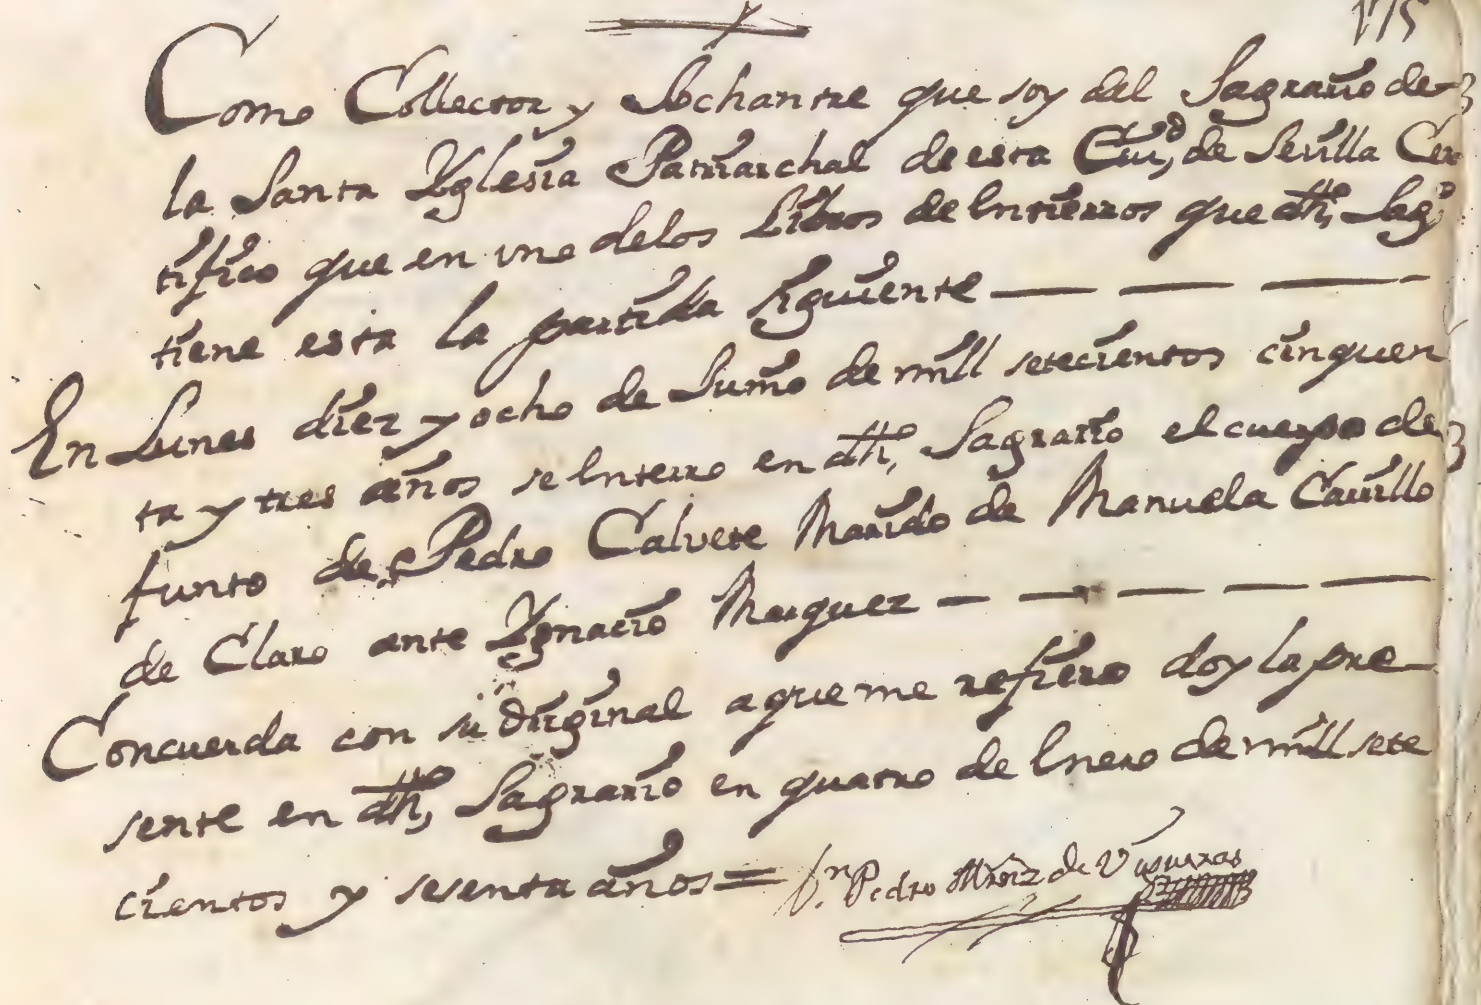 175
Como Collector y Sochantre que soy del Sagrario de
la Santa Yglesia Patriarchal de esta Ciud, de Sevilla Cer
tifico que en uno delos Libros de Entierros que dho, Sago
tiene esta la partida siguiente — — —
En Lunes diez y ocho de Junio de mill setecientos cinquen
ta y tres años se Enterro en dho, Sagrario el cuerpo de
funto de Pedro Calvete Marido de Manuela
de Claro ante Ygnacio Marquez — — — — —
Concuerda con su Original a que me refiero doy la pre
sente en dho, Sagrario en quatro de Enero de mill sete
cientos y sesenta años = Dn. Pedro de